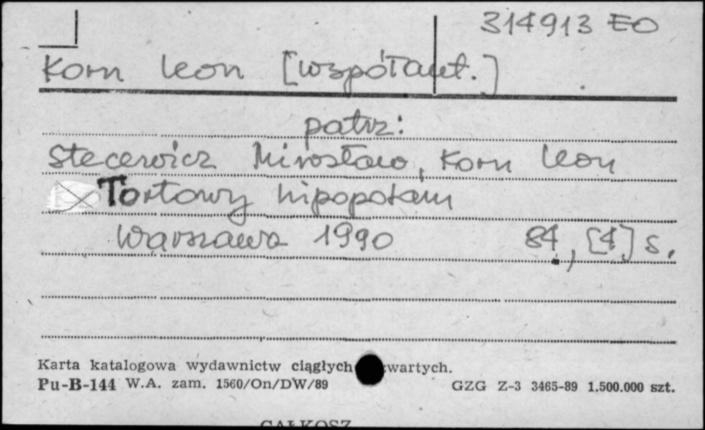 314913 EO
Korn Leon [współaut.]
patrz:
Stecewicz Mirosław, Korn Leon
Tortowy hipopotam
Warszawa 1990 84, [4] s.
Karta katalogowa wydawnictw ciągłych wartych.
Pu-B-144 W.A. zam. 1560/On/DW/89 GZG Z-3 3465-89 1.500.000 szt.